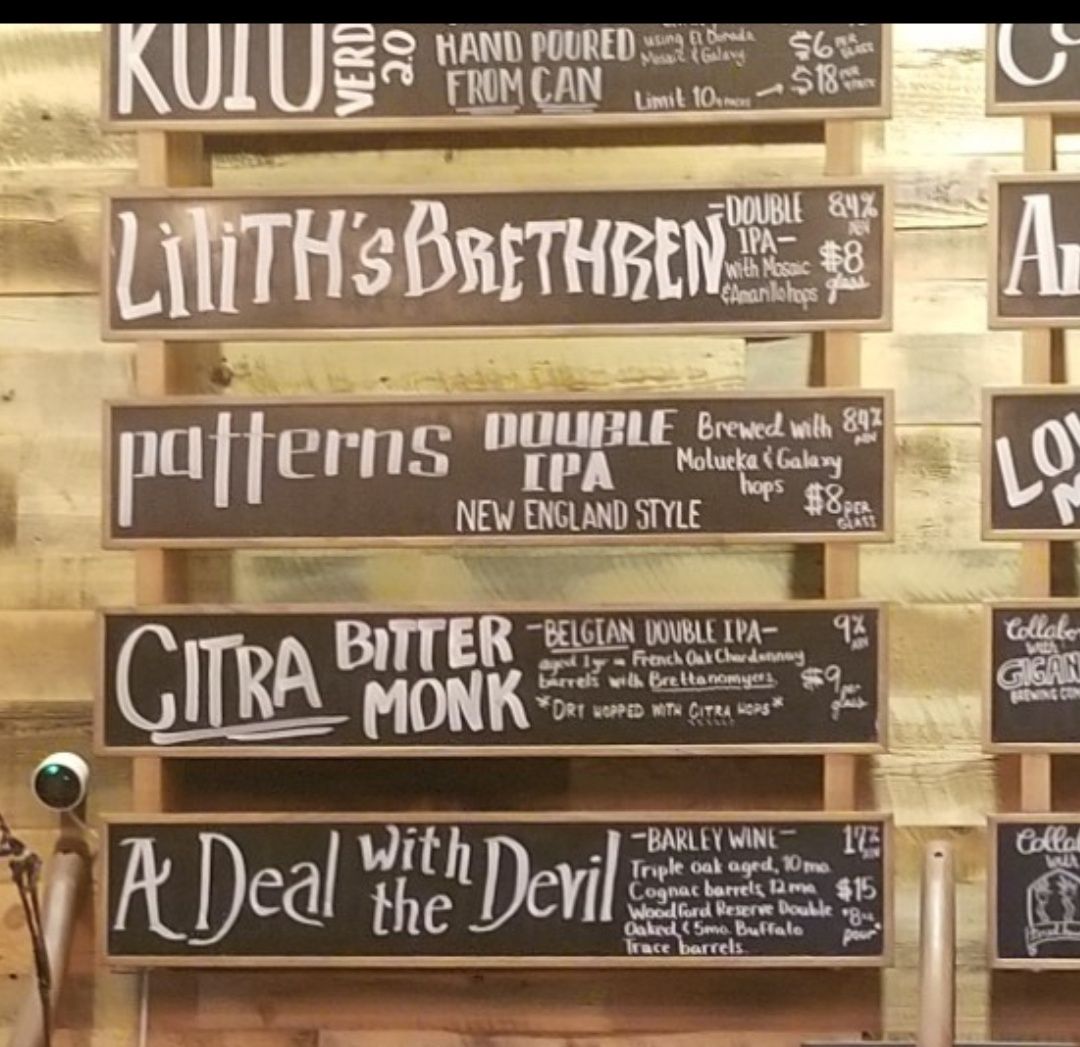 KUIU
VERD
2.0
HAND POURED
FROM CAN
using El Dorado
Mosaic & Galaxy
$6 PER GLASS
Limit 10
$18
LiliTH's BRETHREN
-DOUBLE
IPA-
with Mosaic
& Amarillo hops
8.4%
ABV
$8
glass
patterns
DOUBLE
IPA
NEW ENGLAND STYLE
Brewed with
Motueka & Galaxy
hops
8.4%
ABV
$8 PER
GLASS
CITRA
BITTER
MONK
-BELGIAN DOUBLE IPA-
aged 1 yr in French Oak Chardonnay
barrels with Brettanomyces
*DRY HOPPED WITH CITRA HOPS*
9%
ABV
$9 per
glass
A Deal with
the Devil
-BARLEY WINE-
Triple oak aged, 10 mo.
Cognac barrels, 12 mo.
Woodford Reserve Double
Oaked, & 5 mo. Buffalo
Trace barrels.
17%
ABV
$15
*8oz
pour*
Collabo
with
GIGAN
BREWING COM
Collab
with